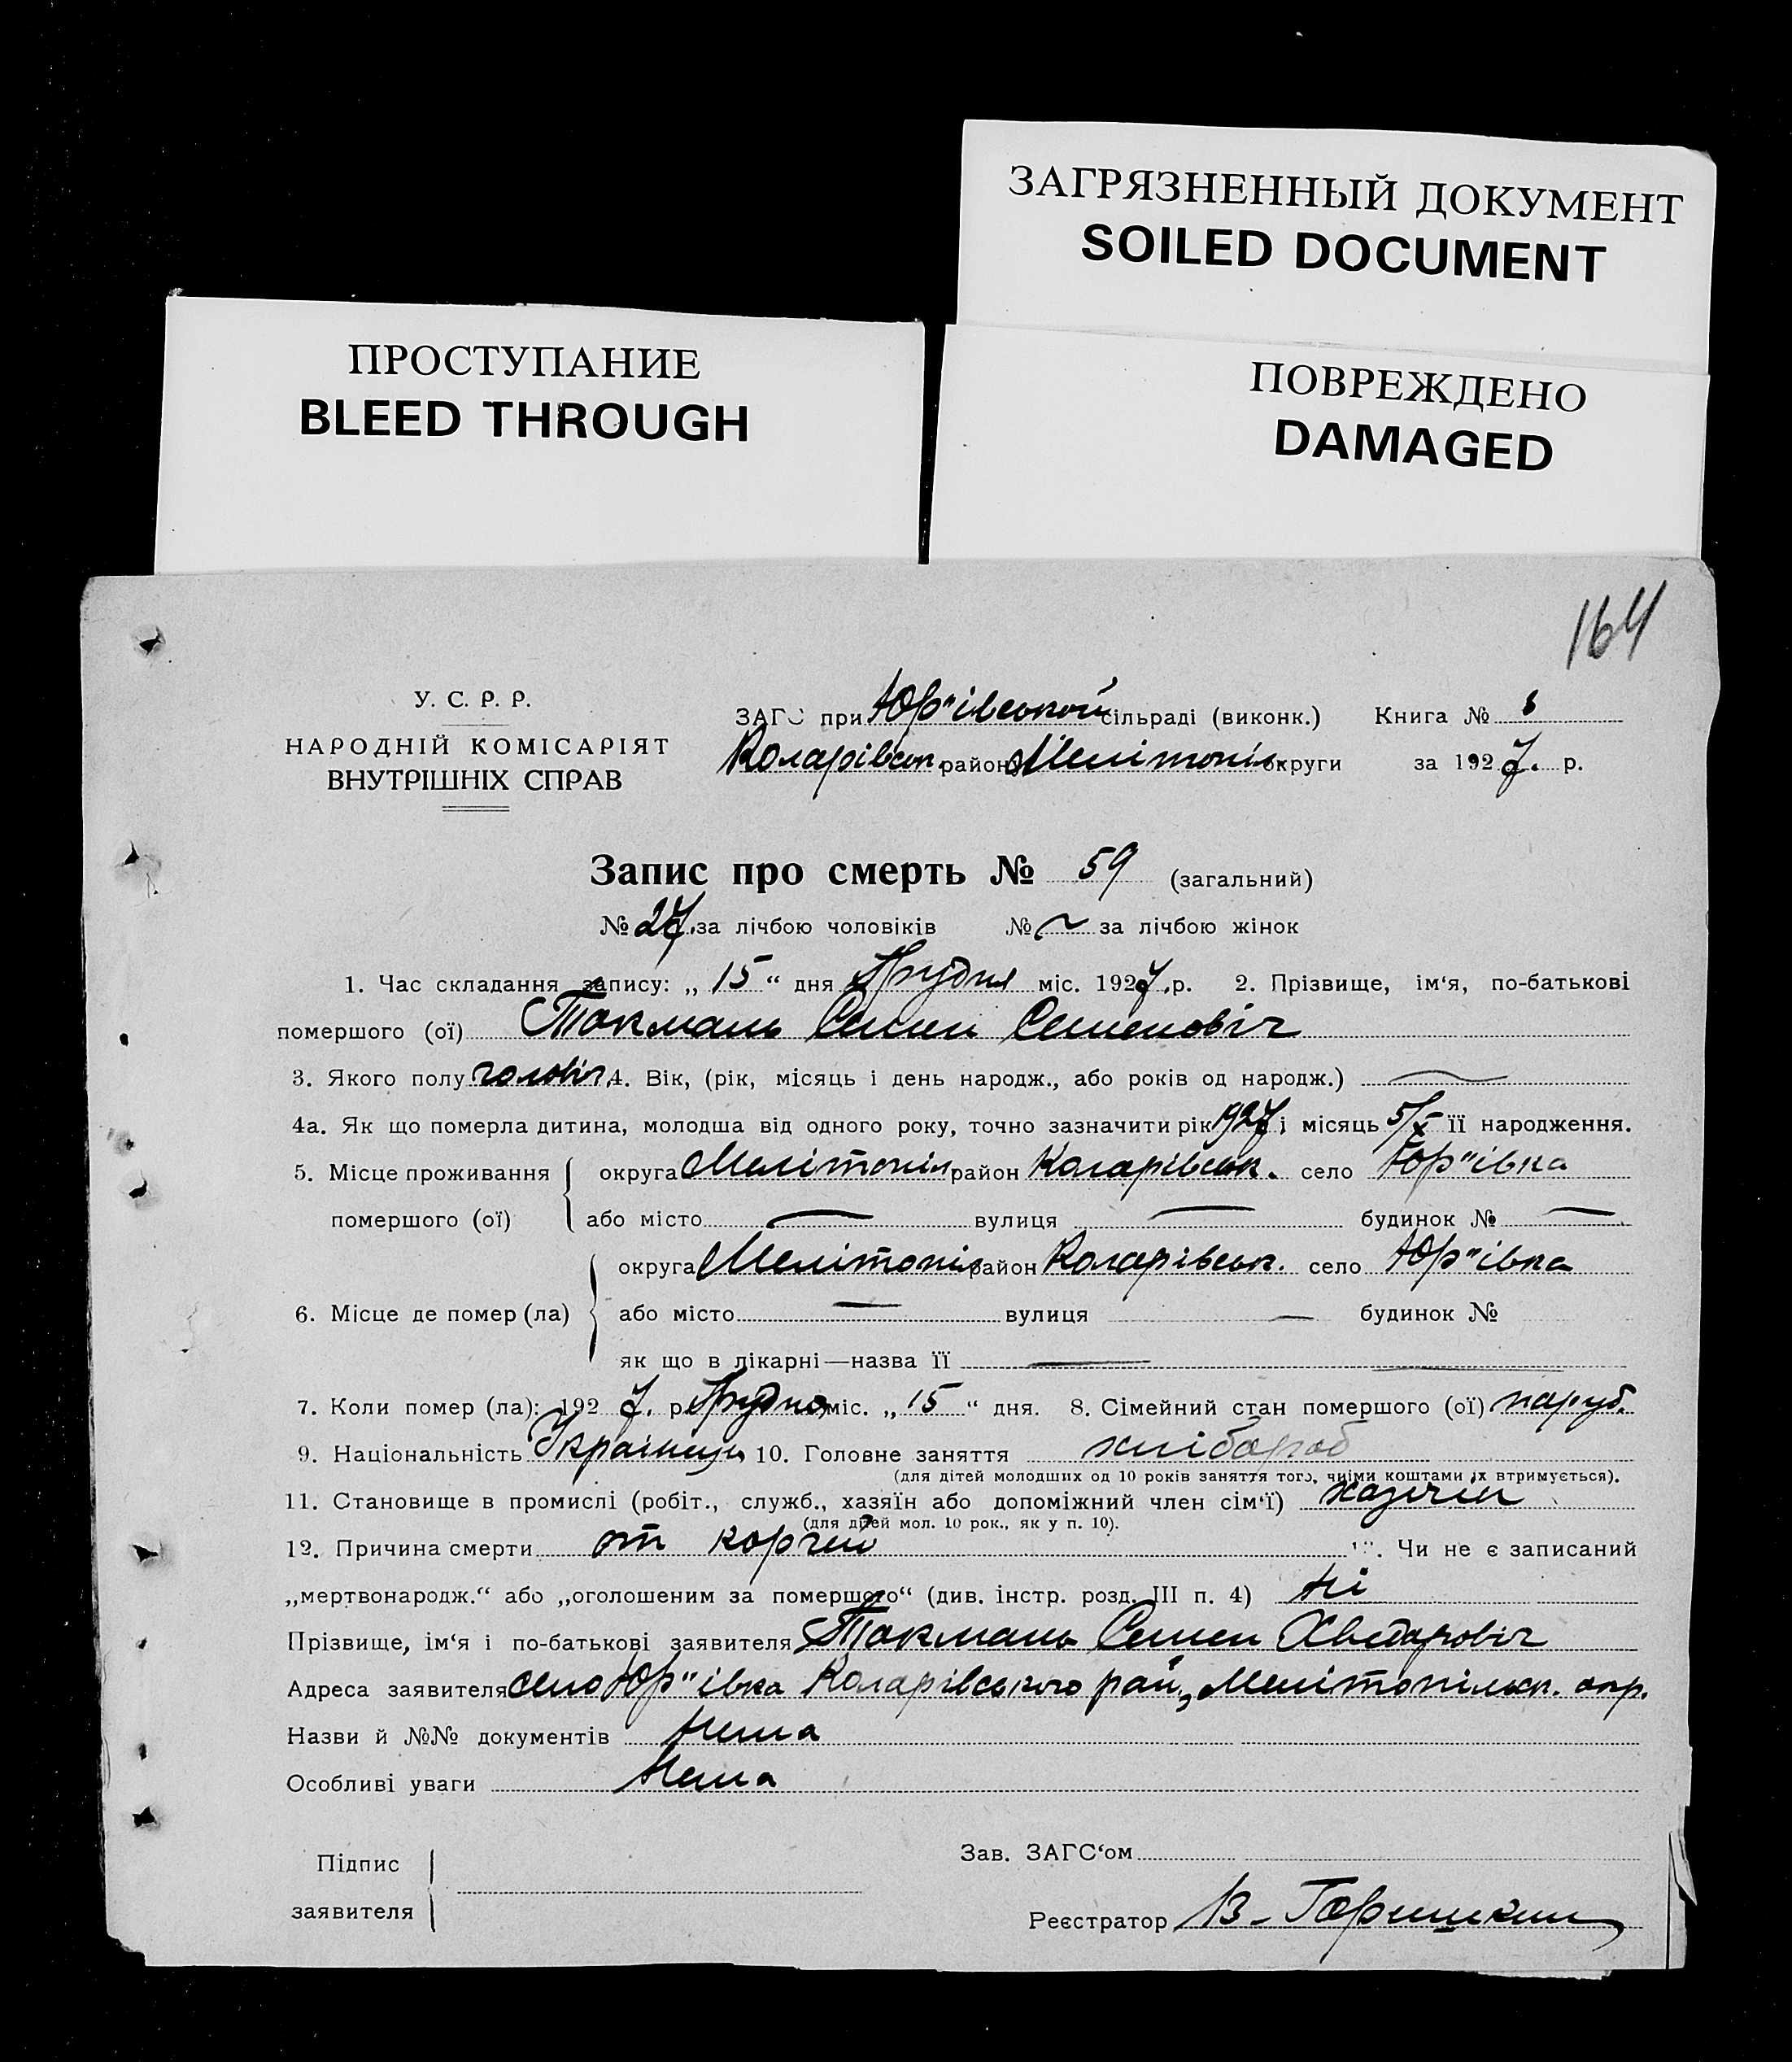 ЗАГРЯЗНЕННЫЙ ДОКУМЕНТ
SOILED DOCUMENT
ПРОСТУПАНИЕ
BLEED THROUGH
ПОВРЕЖДЕНО
DAMAGED
164
У. С. Р. Р.
НАРОДНІЙ КОМІСАРІЯТ
ВНУТРІШНІХ СПРАВ
ЗАГС при Юр"івській сільраді (виконк.) Книга №
Коларівськ. район Мелітопіль. округи за 1927. р.
Запис про смерть № 59 (загальний)
№ 27. за лічбою чоловіків № за лічбою жінок
1. Час складання запису: „ 15 “ дня Грудня міс. 1927. р. 2. Прізвище, ім‘я, по-батькові
помершого (ої) Токмань Семен Семенович
3. Якого полу чоловіч. 4. Вік, (рік, місяць і день народж., або років од народж.) —
4а. Як що померла дитина, молодша від одного року, точно зазначити рік 1927 і місяць 5/X її народження.
5. Місце проживання округа Мелітопіл район Коларівськ. село Юр"івка
помершого (ої) або місто — вулиця — будинок № —
округа Мелітопіл район Коларівськ. село Юр"івка
6. Місце де помер (ла) або місто — вулиця — будинок №
як що в лікарні—назва її —
7. Коли помер (ла): 1927. р. Грудня міс. „ 15 “ дня. 8. Сімейний стан помершого (ої) паруб.
9. Національність Українець 10. Головне заняття хлібороб
(для дітей молодших од 10 років заняття того, чиїми коштами їх втримується).
11. Становище в промислі (робіт., служб., хазяїн або допоміжний член сім‘ї) хазяїн
(для дітей мол. 10 рок., як у п. 10).
12. Причина смерти от корчей Чи не є записаний
„мертвонародж.“ або „оголошеним за помершого“ (див. інстр. розд. III п. 4) Ні
Прізвище, ім‘я і по-батькові заявителя Токмань Семен Хведорович
Адреса заявителя село Юр"івка Коларівського рай, Мелітопільск. окр.
Назви й №№ документів Нема
Особливі уваги Нема
Підпис
заявителя
Зав. ЗАГС‘ом
Реєстратор В.